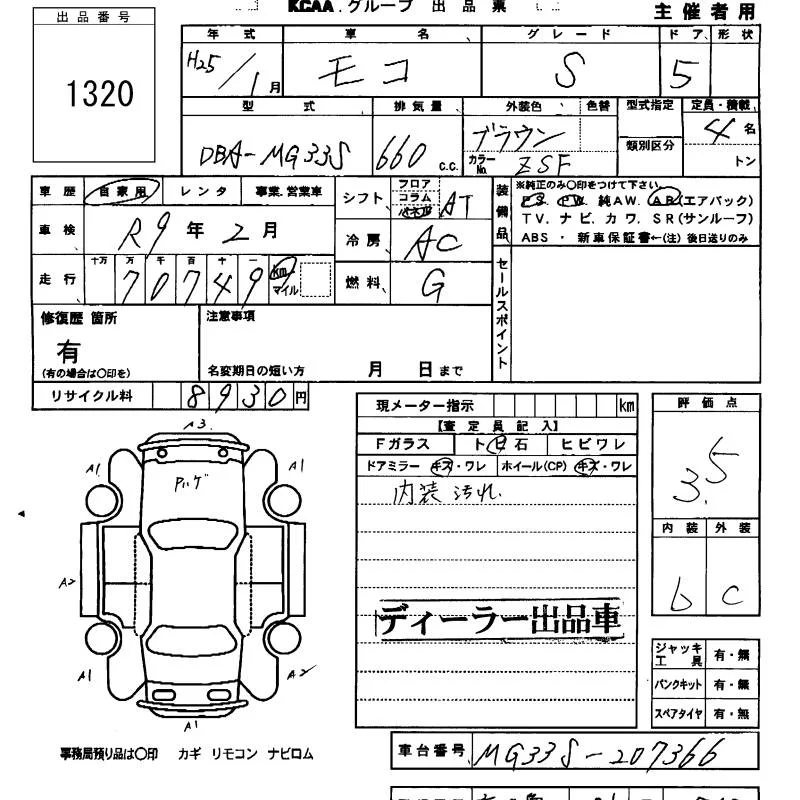 KCAA.グループ 出品票
主催者用
出品番号
1320
年式 車名 グレード ドア 形状
H25/1月 モコ S 5
型式 排気量 外装色 色替 型式指定 定員・積載
類別区分
DBA-MG33S 660 c.c. ブラウン 4名
カラーNo. ZSF トン
車歴 自家用 レンタ 事業.営業車
シフト フロア コラム インパネ AT
装備品
※純正のみ〇印をつけて下さい
P.S. P.W. 純AW. AB(エアバック)
TV. ナビ. カワ. SR(サンルーフ)
ABS・新車保証書←(注) 後日送りのみ
車検 R9年2月
冷房 AC
走行 十万 万 千 百 十 一
70749 km マイル
燃料 G
セールスポイント
修復歴 箇所
有
(有の場合は〇印を)
注意事項
名変期日の短い方 月 日まで
リサイクル料 8930円
現メーター指示 km
【査定員記入】
Fガラス トビ石 ヒビワレ
ドアミラー キズ・ワレ ホイール(CP) キズ・ワレ
内装汚れ
ディーラー出品車
評価点
3.5
内装 外装
b c
A3.
A1 A1
Pハゲ
A2
A1 A2
A1
ジャッキ工具 有・無
パンクキット 有・無
スペアタイヤ 有・無
事務局預り品は〇印 カギ リモコン ナビロム
車台番号 MG33S-207366